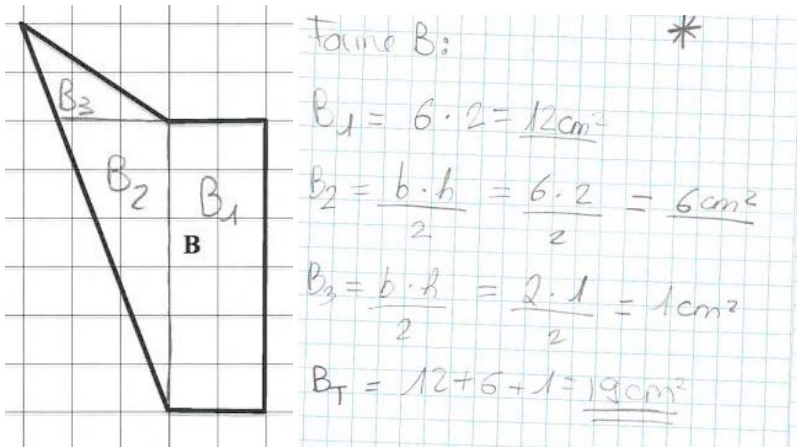 B3
B2
B1
B
*
B1 = 6 · 2 = 12cm²
B2 = b · h / 2 = 6 · 2 / 2 = 6cm²
B3 = b · h / 2 = 2 · 1 / 2 = 1cm²
BT = 12 + 6 + 1 = 19cm²